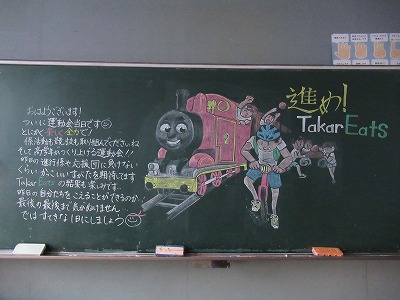 おはようございます!
ついに運動会当日です
とにかく楽しく全力で!
係活動も競技も取り組んでくださいね
そして高学年がつくり上げる運動会!!
昨日の進行係や応援団に負けない
くらいかっこいいすがたを期待してます
Takar Eatsの結果も楽しみです
昨日の自分たちをこえることができるのか
最後の最後まで気がぬけません
ではすてきな1日にしましょう
進め!
Takar Eats
2